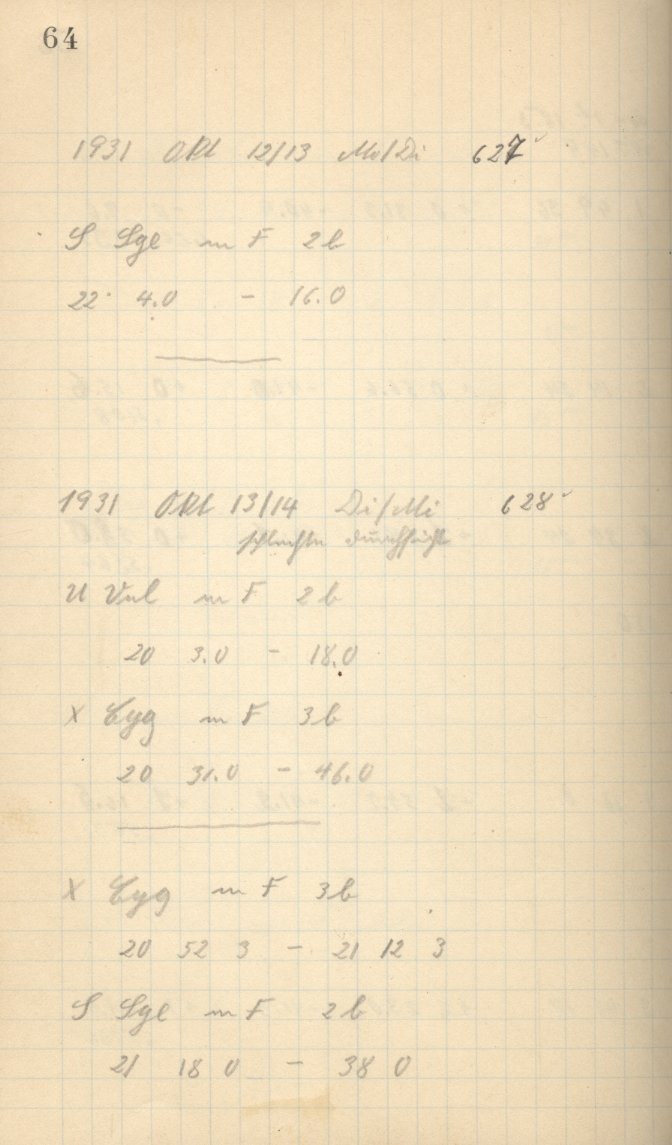 64
1931 Okt 12/13 Mo/Di 627
S Sge m F 2b
22 4.0 - 16.0
1931 Okt 13/14 Di/Mi 628
schlechte Durchsicht
U Vul m F 2b
20 3.0 - 18.0
X Cyg m F 3b
20 31.0 - 46.0
X Cyg m F 3b
20 52 3 - 21 12 3
S Sge m F 2b
21 18 0 - 38 0